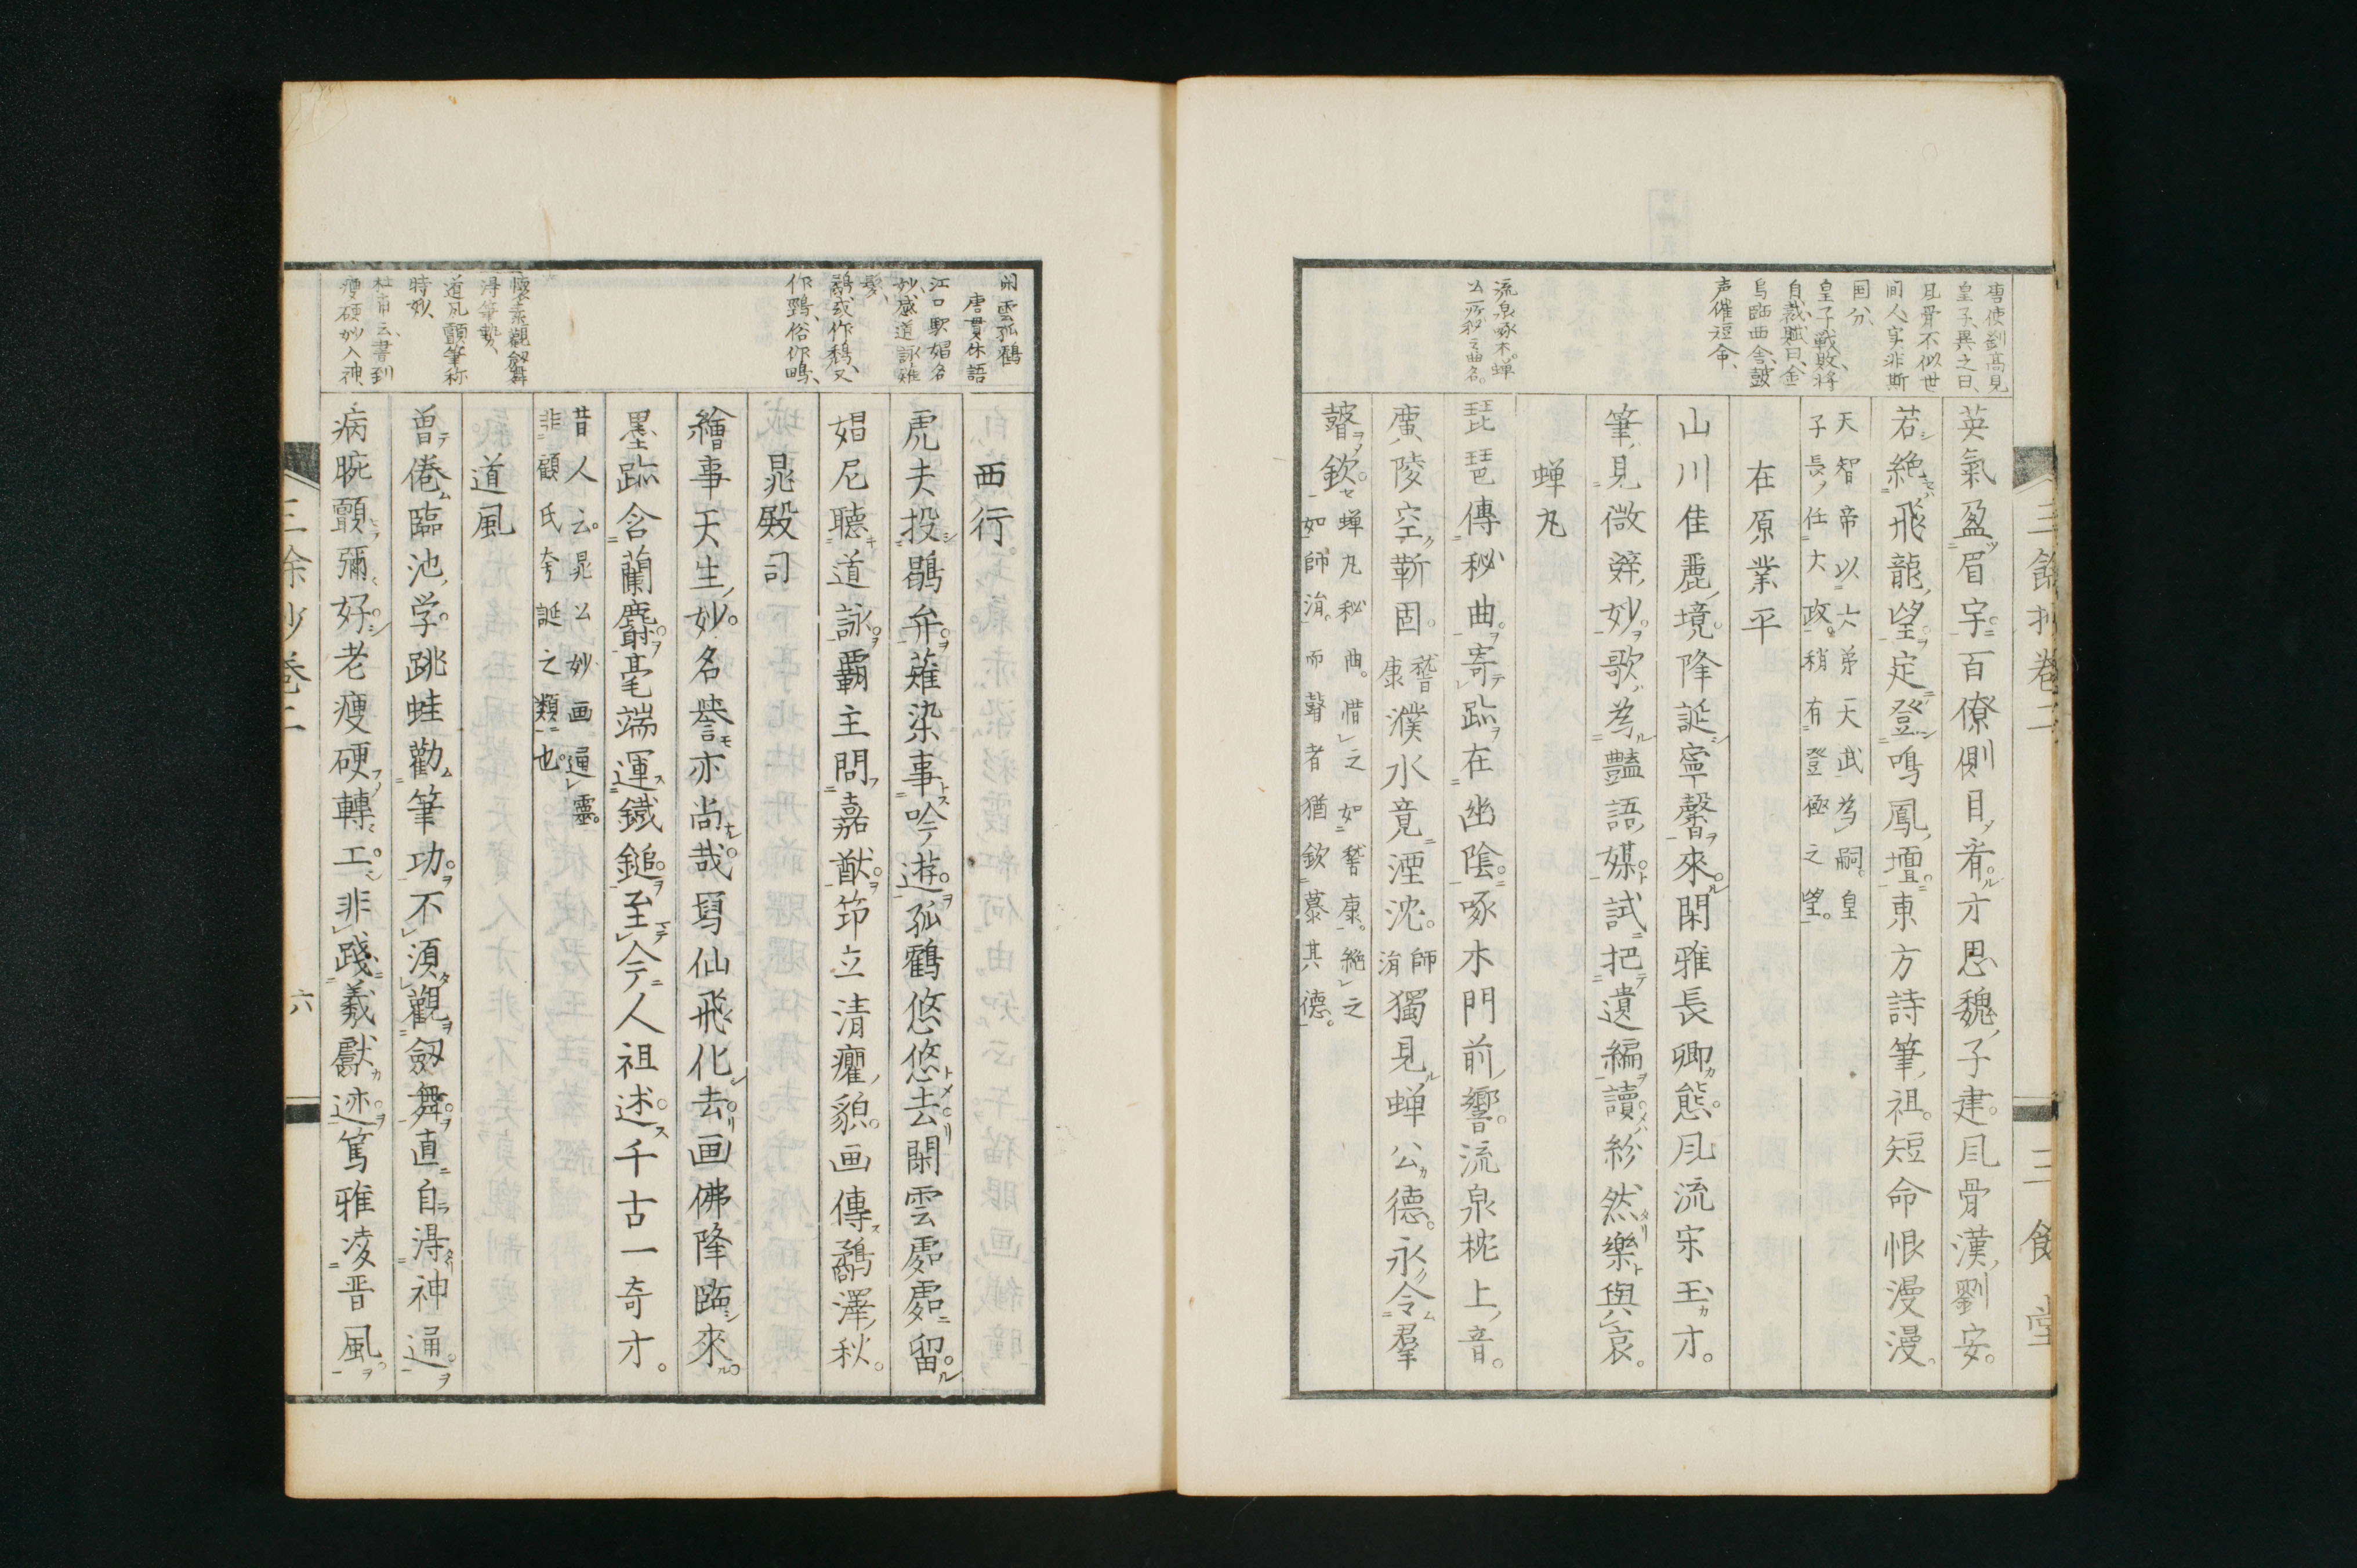 唐使劉高見
皇子異之曰、
凡骨不似世
間人、宇非斯
国分、
皇子戦敗、将
自裁賦曰、金
烏臨西舎、鼓
声催短命、
英氣盈眉宇百僚側目看才思魏子建風骨漢劉安
若絶飛龍望定登鳴鳳壇東方詩筆祖短命恨漫漫
天智帝以大弟天武為嗣皇
子長任大政稍有登極之望
在原業平
山川佳麗境降誕寧馨來閑雅長卿態風流宋玉才
筆見微辞妙歌為豔語媒試把遺編讀紛然樂與哀
蝉丸
流泉啄木蝉
公所秘之曲名。
琵琶傳秘曲寄跡在幽陰啄木門前響流泉枕上音
廣陵空靳固嵆康濮水竟湮沈師涓獨見蝉公德永令羣
瞽欽蝉丸秘曲惜之如嵆康絶之
如師涓而瞽者猶欽慕其德
三餘抄巻二
三餘堂
閑雲孤鶴
唐貫休語
江口駅娼名
妙感道詠雉
髪、
鷸或作鷸、又
作鵄、俗作鴫、
西行
虎夫投鵾弁薙染事吟遊孤鶴悠悠去閑雲處處留
娼尼聴道詠覇主問嘉猷節立清癯貌画傳鷸澤秋
晁殿司
繪事天生妙名誉亦尚哉写仙飛化去画佛降臨來
墨跡含蘭麝毫端運鐵鎚至今人祖述千古一奇才
昔人云晁公妙画通靈
非顧氏夸誕之類也
懐素觀劔舞
得筆勢、
道凡顫筆称
時妙、
杜甫云、書到
瘦硬妙入神、
道風
曽倦臨池学跳蛙勸筆功不須觀劔舞直自得神通
病腕顫彌好老瘦硬轉工非踐羲獻迹篤雅凌晋風
三余抄巻二
六